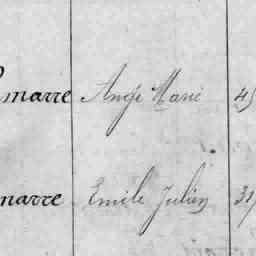 marre Ange Marie 45
marre Emile Julien 31